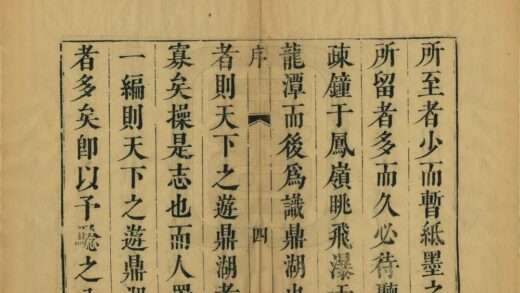 所至者少而暫紙墨之
所留者多而久必待聽
疎鐘于鳳嶺眺飛瀑于
龍潭而後爲識鼎湖也
序 四
者則天下之遊鼎湖者
寡矣操是志也而人置
一編則天下之遊鼎湖
者多矣卽以予騐之